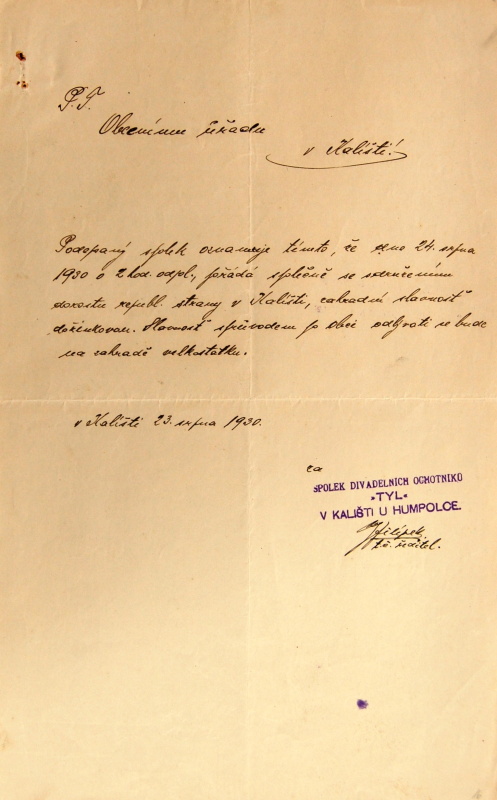 P.T.
Obecnímu úřadu
v Kališti!
Podepsaný spolek oznamuje tímto, že dne 24. srpna
1930 o 2 hod. odpol., pořádá společně se sdružením
dorostu republ. strany v Kališti, zahradní slavnost
dožínkovou. Slavnost s průvodem po obci odbývati se bude
na zahradě velkostatku.
v Kališti 23. srpna 1930.
za
SPOLEK DIVADELNÍCH OCHOTNÍKŮ
»TYL«
V KALIŠTI U HUMPOLCE.
Filípek
ředitel.